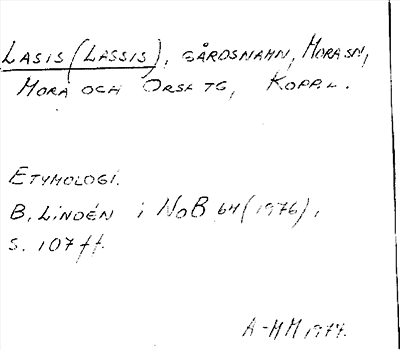 LASIS (LASSIS), GÅRDSNAMN, MORA SN,
MORA OCH ORSA TG, KOPP. L.
ETYMOLOGI.
B. LINDÉN i NoB 64 (1976),
S. 107 ff.
A-MM 1977.